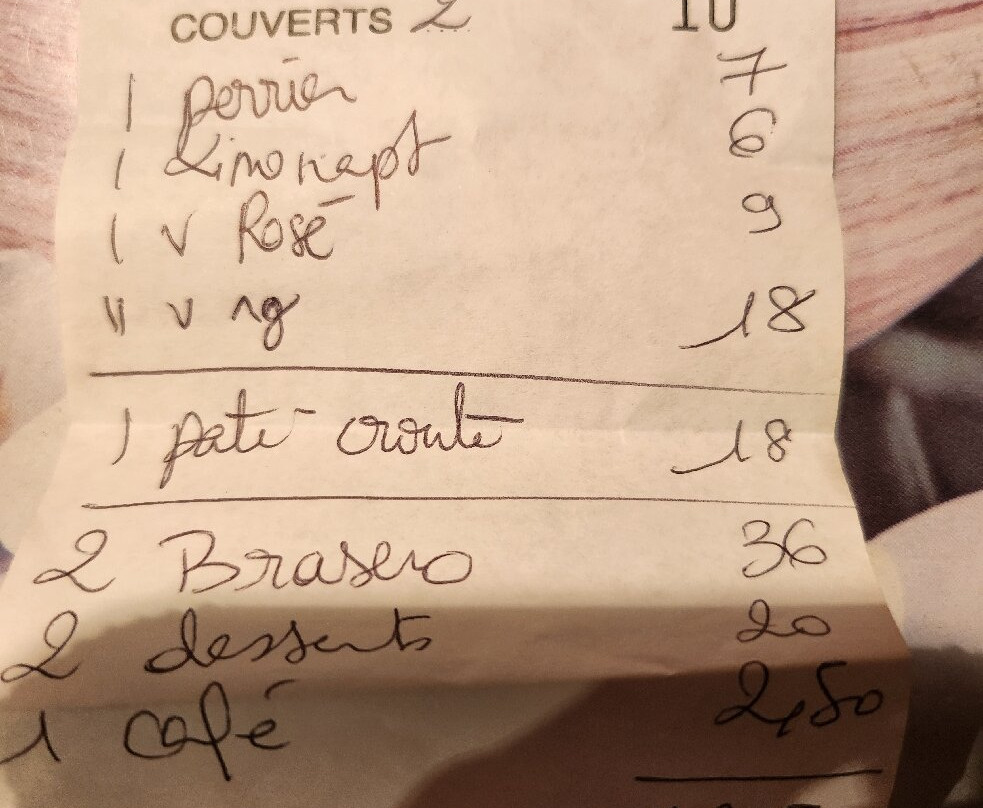 COUVERTS 2 10
1 perrier 7
1 Limonapt 6
1 v Rosé 9
11 v rg 18
1 paté croute 18
2 Brasero 36
2 desserts 20
1 café 2,50